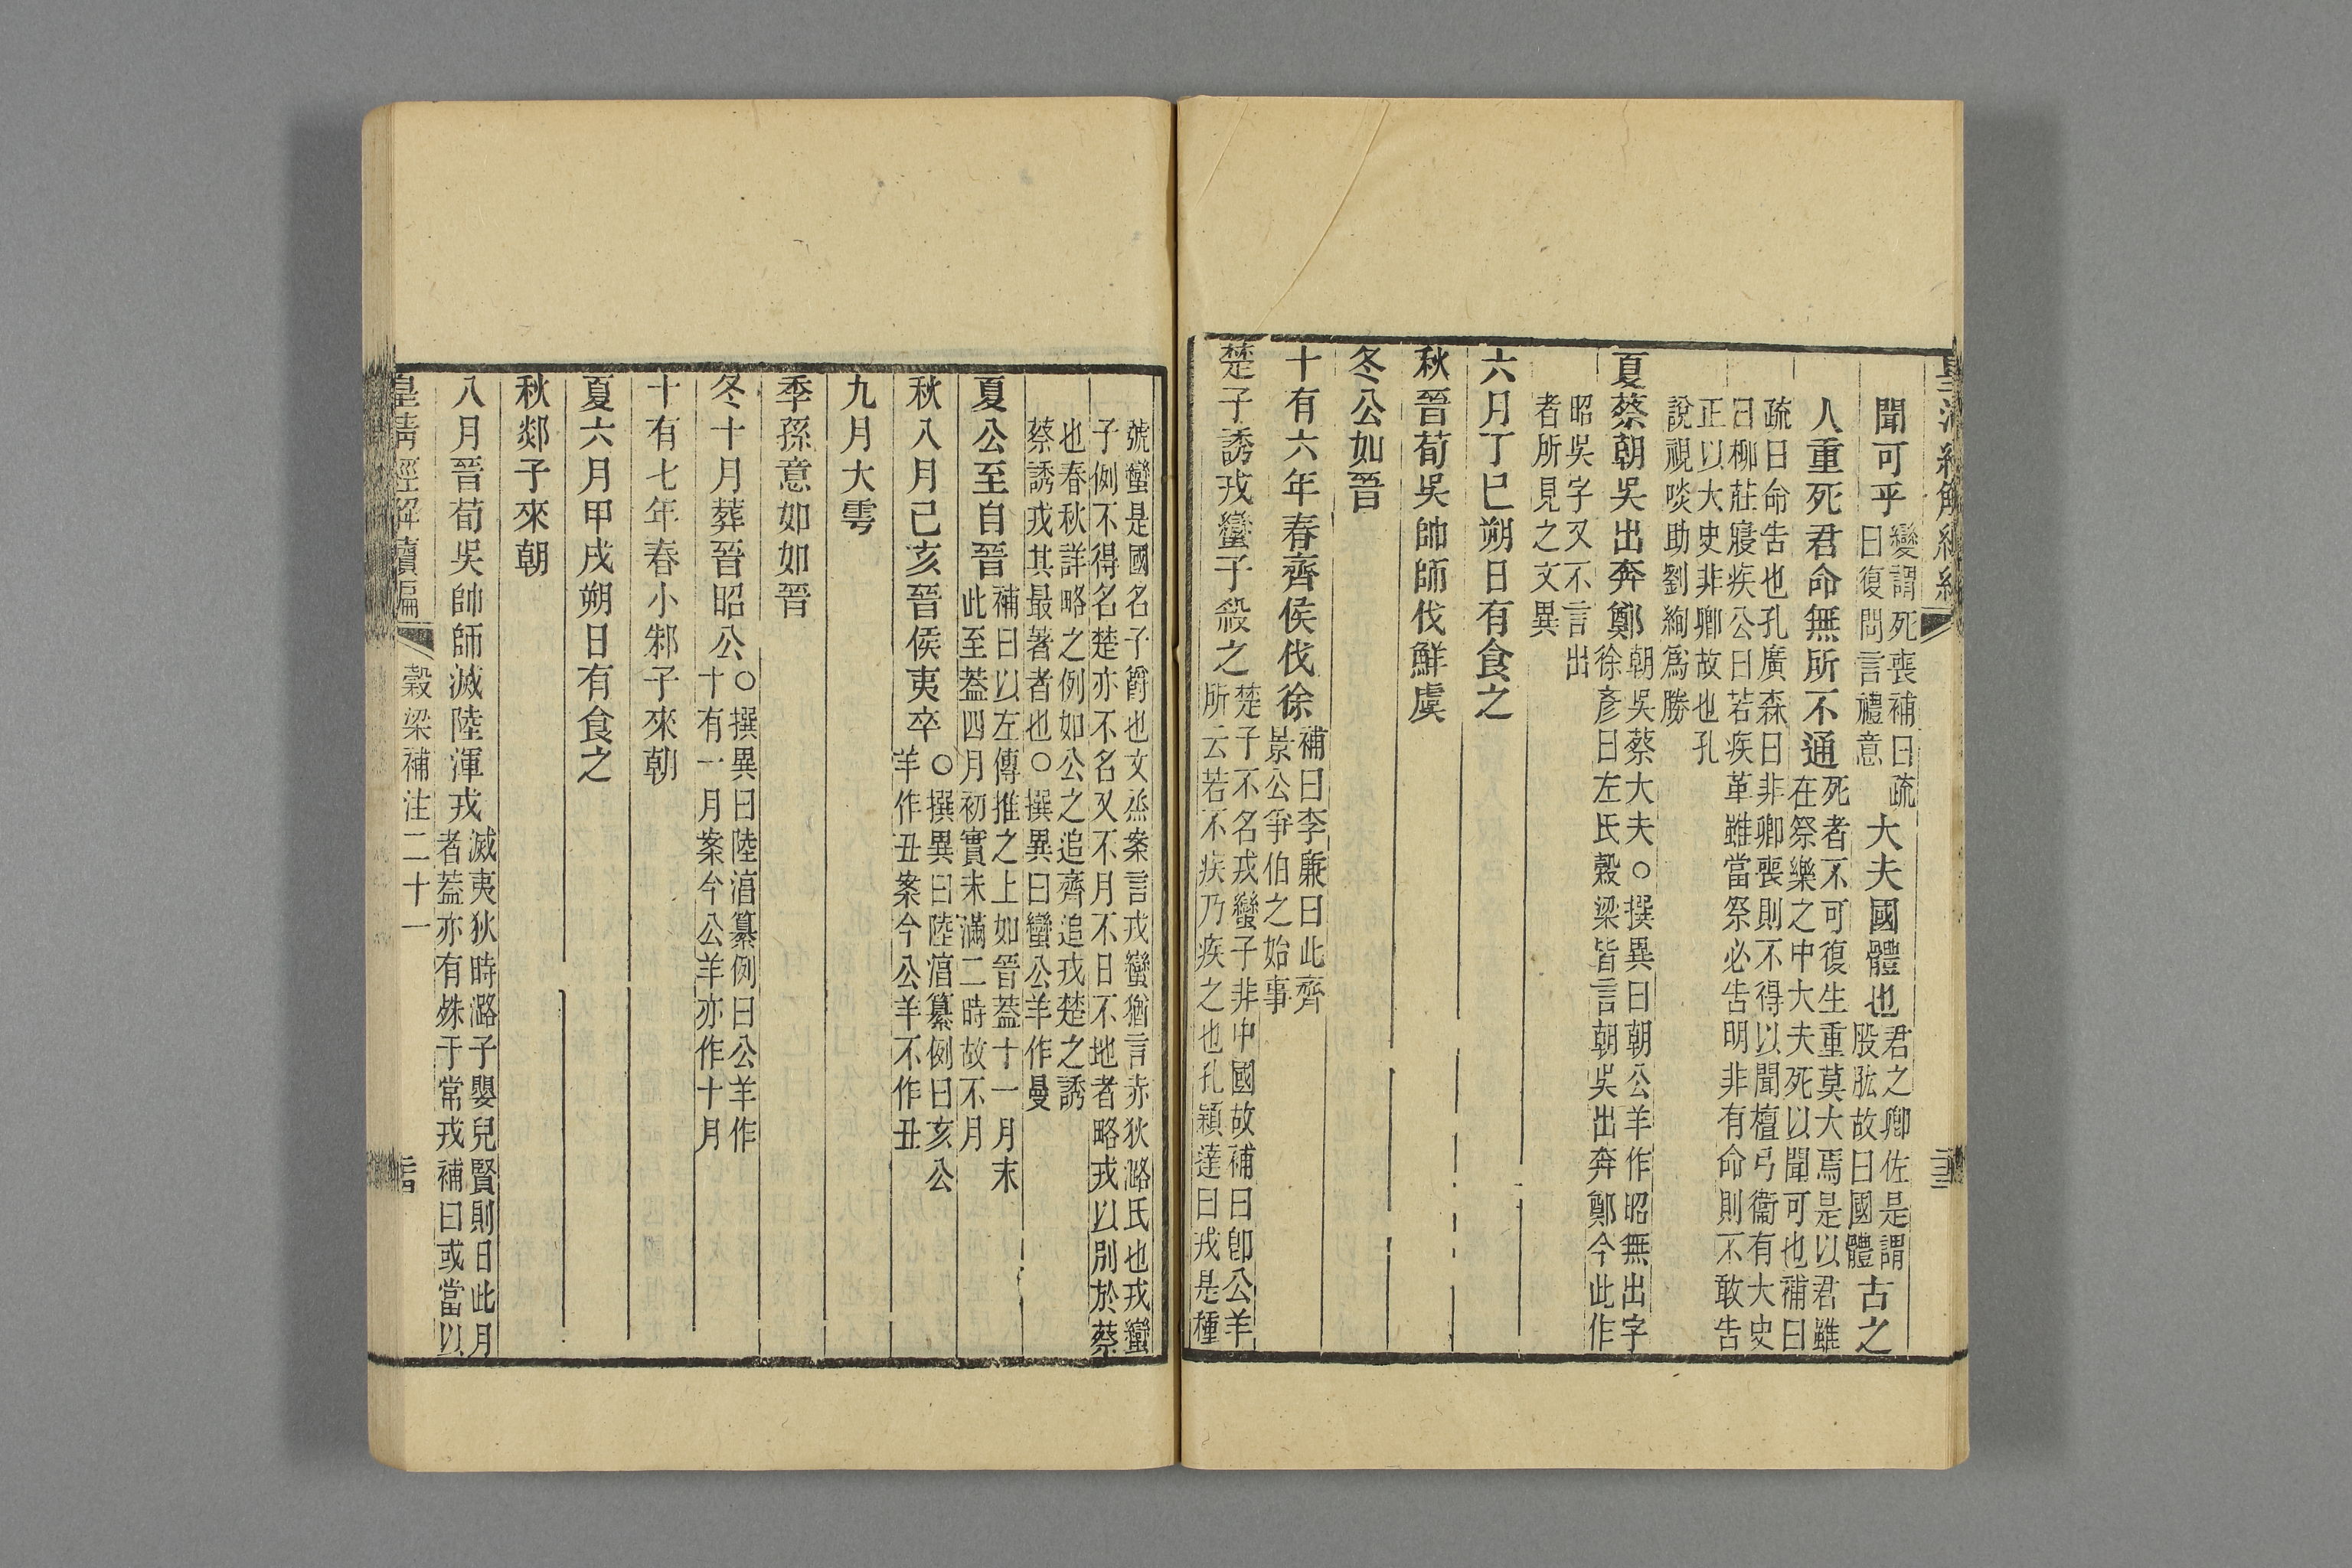 皇清經解續編
聞可乎變謂死喪補曰疏曰復問言禮意大夫國體也君之卿佐是謂股肱故曰國體古之
人重死君命無所不通死者不可復生重莫大焉是以君雖在祭樂之中大夫死以聞可也補曰
疏曰命告也孔廣森曰非卿喪則不得以聞檀弓衞有大史
曰柳莊寢疾公曰若疾革雖當祭必告明非有命則不敢告
正以大史非卿故也孔
說視啖助劉絢爲勝
夏蔡朝吳出奔鄭朝吳蔡大夫○撰異曰朝公羊作昭無出字徐彥曰左氏穀梁皆言朝吳出奔鄭今此作
昭吳字又不言出
者所見之文異
六月丁巳朔日有食之
秋晉荀吳帥師伐鮮虞
冬公如晉
十有六年春齊侯伐徐補曰李廉曰此齊景公爭伯之始事
楚子誘戎蠻子殺之楚子不名戎蠻子非中國故補曰卽公羊所云若不疾乃疾之也孔穎達曰戎是種
號蠻是國名子爵也文烝案言戎蠻猶言赤狄潞氏也戎蠻
子例不得名楚亦不名又不月不日不地者略戎以別於蔡
也春秋詳略之例如公之追齊追戎楚之誘
蔡誘戎其最著者也○撰異曰蠻公羊作曼
夏公至自晉補曰以左傳推之上如晉蓋十一月末此至蓋四月初實未滿二時故不月
秋八月己亥晉侯夷卒○撰異曰陸淳纂例曰亥公羊作丑案今公羊不作丑
九月大雩
季孫意如如晉
冬十月葬晉昭公○撰異曰陸淳纂例曰公羊作十有一月案今公羊亦作十月
十有七年春小邾子來朝
夏六月甲戌朔日有食之
秋郯子來朝
八月晉荀吳帥師滅陸渾戎滅夷狄時潞子嬰兒賢則日此月者蓋亦有殊于常戎補曰或當以
皇清經解續編 穀梁補注二十一